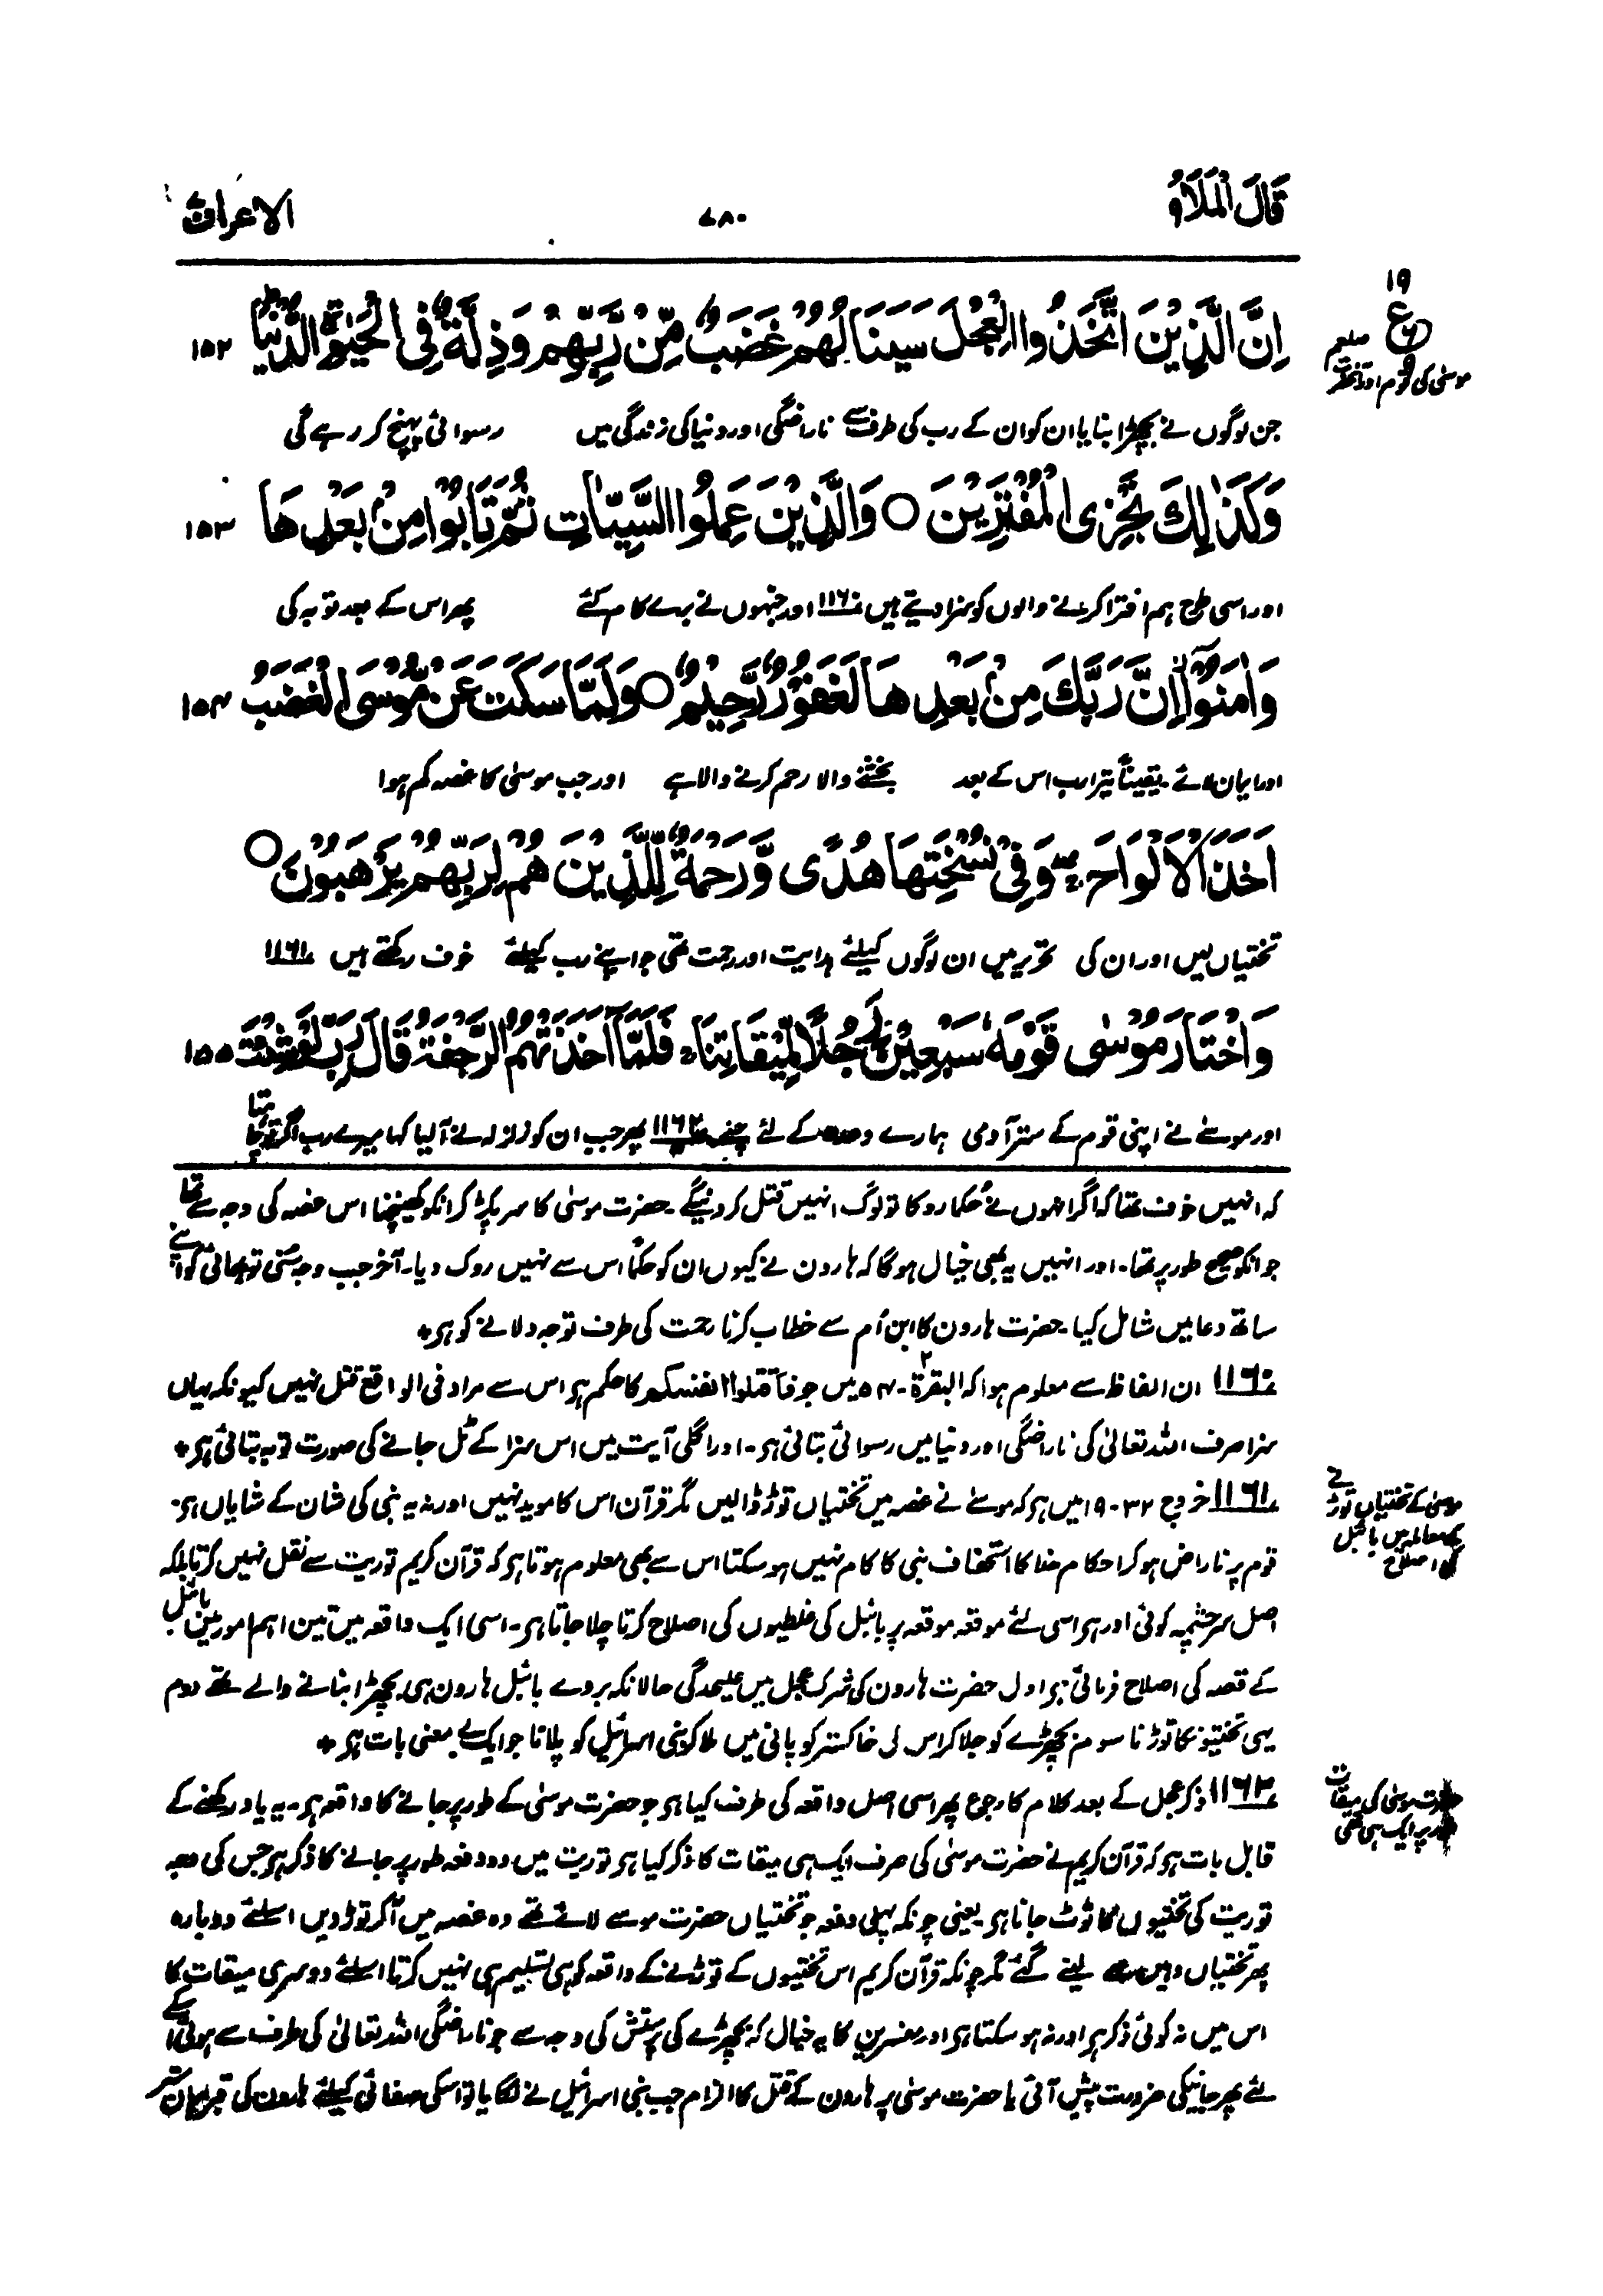 قَالَ الْمَلَاُ
۷۸۰
الاعراف
۱۹
ع
موسیٰ کی قوم اور آنحضرت صلعم
اِنَّ الَّذِيْنَ اتَّخَذُوا الْعِجْلَ سَيَنَالُهُمْ غَضَبٌ مِّنْ رَّبِّهِمْ وَذِلَّةٌ فِى الْحَيٰوةِ الدُّنْيَا ۱۵۲
جن لوگوں نے بچھڑا بنایا ان کو ان کے رب کی طرف سے ناراضگی اور دنیا کی زندگی میں رسوائی پہنچ کر رہے گی
وَكَذٰلِكَ نَجْزِى الْمُفْتَرِيْنَ ○ وَالَّذِيْنَ عَمِلُوا السَّيِّاٰتِ ثُمَّ تَابُوْا مِنْۢ بَعْدِهَا ۱۵۳
اور اسی طرح ہم افترا کرنے والوں کو سزا دیتے ہیں ۱۱۶۰ اور جنہوں نے برے کام کئے پھر اس کے بعد توبہ کی
وَاٰمَنُوْٓا اِنَّ رَبَّكَ مِنْۢ بَعْدِهَا لَغَفُوْرٌ رَّحِيْمٌ ○ وَلَمَّا سَكَتَ عَنْ مُّوْسَى الْغَضَبُ ۱۵۴
اور ایمان لائے۔ یقیناً تیرا رب اس کے بعد بخشنے والا رحم کرنے والا ہے اور جب موسیٰ کا غصہ کم ہوا
اَخَذَ الْاَلْوَاحَ ۖ وَفِىْ نُسْخَتِهَا هُدًى وَّرَحْمَةٌ لِّلَّذِيْنَ هُمْ لِرَبِّهِمْ يَرْهَبُوْنَ ○
تختیاں لیں اور ان کی تحریر میں ان لوگوں کیلئے ہدایت اور رحمت تھی جو اپنے رب کیلئے خوف رکھتے ہیں ۱۱۶۱
وَاخْتَارَ مُوْسٰى قَوْمَهٗ سَبْعِيْنَ رَجُلًا لِّمِيْقَاتِنَا ۚ فَلَمَّآ اَخَذَتْهُمُ الرَّجْفَةُ قَالَ رَبِّ لَوْ شِئْتَ ۱۵۵
اور موسےٰ نے اپنی قوم کے ستر آدمی ہمارے وعدہ کے لئے چنے ۱۱۶۲ پھر جب ان کو زلزلہ نے آلیا کہا میرے رب اگر تو چاہتا
کہ انہیں خوف تھا کہ اگر انہوں نے حکما روکا تو لوگ انہیں قتل کر دینگے۔ حضرت موسیٰ کا سر پکڑ کر انکو کھینچنا اس غصہ کی وجہ سے تھا
جو انکو صحیح طور پر تھا۔ اور انہیں یہ بھی خیال ہوگا کہ ہارون نے کیوں ان کو حکماً اس سے نہیں روک دیا۔ آخر جب وجہ سنی تو بھائی کو اپنے
ساتھ دعا میں شامل کیا۔ حضرت ہارون کا ابن اُم سے خطاب کرنا رحمت کی طرف توجہ دلانے کو ہے٭
۱۱۶۰ ان الفاظ سے معلوم ہوا کہ البقرۃ۲۔۵۴ میں جو فاقتلوا انفسکم کا حکم ہے اس سے مراد فی الواقع قتل نہیں کیونکہ یہاں
سزا صرف اللہ تعالیٰ کی ناراضگی اور دنیا میں رسوائی بتائی ہے۔ اور اگلی آیت میں اس سزا کے ٹل جانے کی صورت توبہ بتائی ہے٭
۱۱۶۱ خروج ۳۲۔۱۹ میں ہے کہ موسےٰ نے غصہ میں تختیاں توڑ ڈالیں مگر قرآن اس کا موید نہیں اور نہ یہ نبی کی شان کے شایاں ہے۔
موسیٰ کے تختیاں توڑنے کے معاملہ میں بائبل کی اصلاح
قوم پر ناراض ہو کر احکام خدا کا استخفاف نبی کا کام نہیں ہو سکتا اس سے بھی معلوم ہوتا ہے کہ قرآن کریم توریت سے نقل نہیں کرتا بلکہ
اصل سرچشمہ کوئی اور ہے اسی لئے موقعہ موقعہ پر بائبل کی غلطیوں کی اصلاح کرتا چلا جاتا ہے۔ اسی ایک واقعہ میں تین اہم امور میں بائبل
کے قصہ کی اصلاح فرمائی ہے اول حضرت ہارون کی شرک عجل میں علیحدگی حالانکہ بروے بائبل ہارون ہی بچھڑا بنانے والے تھے دوم
یہی تختیونکا توڑنا سوم بچھڑے کو جلا کر اس کی خاکستر کو پانی میں ملا کر بنی اسرائیل کو پلانا جو ایک بے معنی بات ہے٭
۱۱۶۲ ذکر عجل کے بعد کلام کا رجوع پھر اسی اصل واقعہ کی طرف کیا ہے جو حضرت موسیٰ کے طور پر جانے کا واقعہ ہے۔ یہ یاد رکھنے کے
حضرت موسیٰ کی میقات طور پر ایک ہی تھی
قابل بات ہے کہ قرآن کریم نے حضرت موسیٰ کی صرف ایک ہی میقات کا ذکر کیا ہے توریت میں دو دفعہ طور پر جانے کا ذکر ہے جس کی وجہ
توریت کی تختیوں کا ٹوٹ جانا ہے یعنی چونکہ پہلی دفعہ جو تختیاں حضرت موسے لائے تھے وہ غصہ میں آکر توڑ دیں اسلئے دوبارہ
پھر تختیاں وہیں سے لینے گئے مگر چونکہ قرآن کریم اس تختیوں کے توڑنے کے واقعہ کو ہی تسلیم ہی نہیں کرتا اسلئے دوسری میقات کا
اس میں نہ کوئی ذکر ہے اور نہ ہو سکتا ہے اور مفسرین کا یہ خیال کہ بچھڑے کی پرستش کی وجہ سے جو ناراضگی اللہ تعالیٰ کی طرف سے ہوئی اسکے
لئے پھر جانیکی ضرورت پیش آئی یا حضرت موسیٰ پر ہارون کے قتل کا الزام جب بنی اسرائیل نے لگایا تو اسکی صفائی کیلئے ہارون کی قبر پر ان ستر